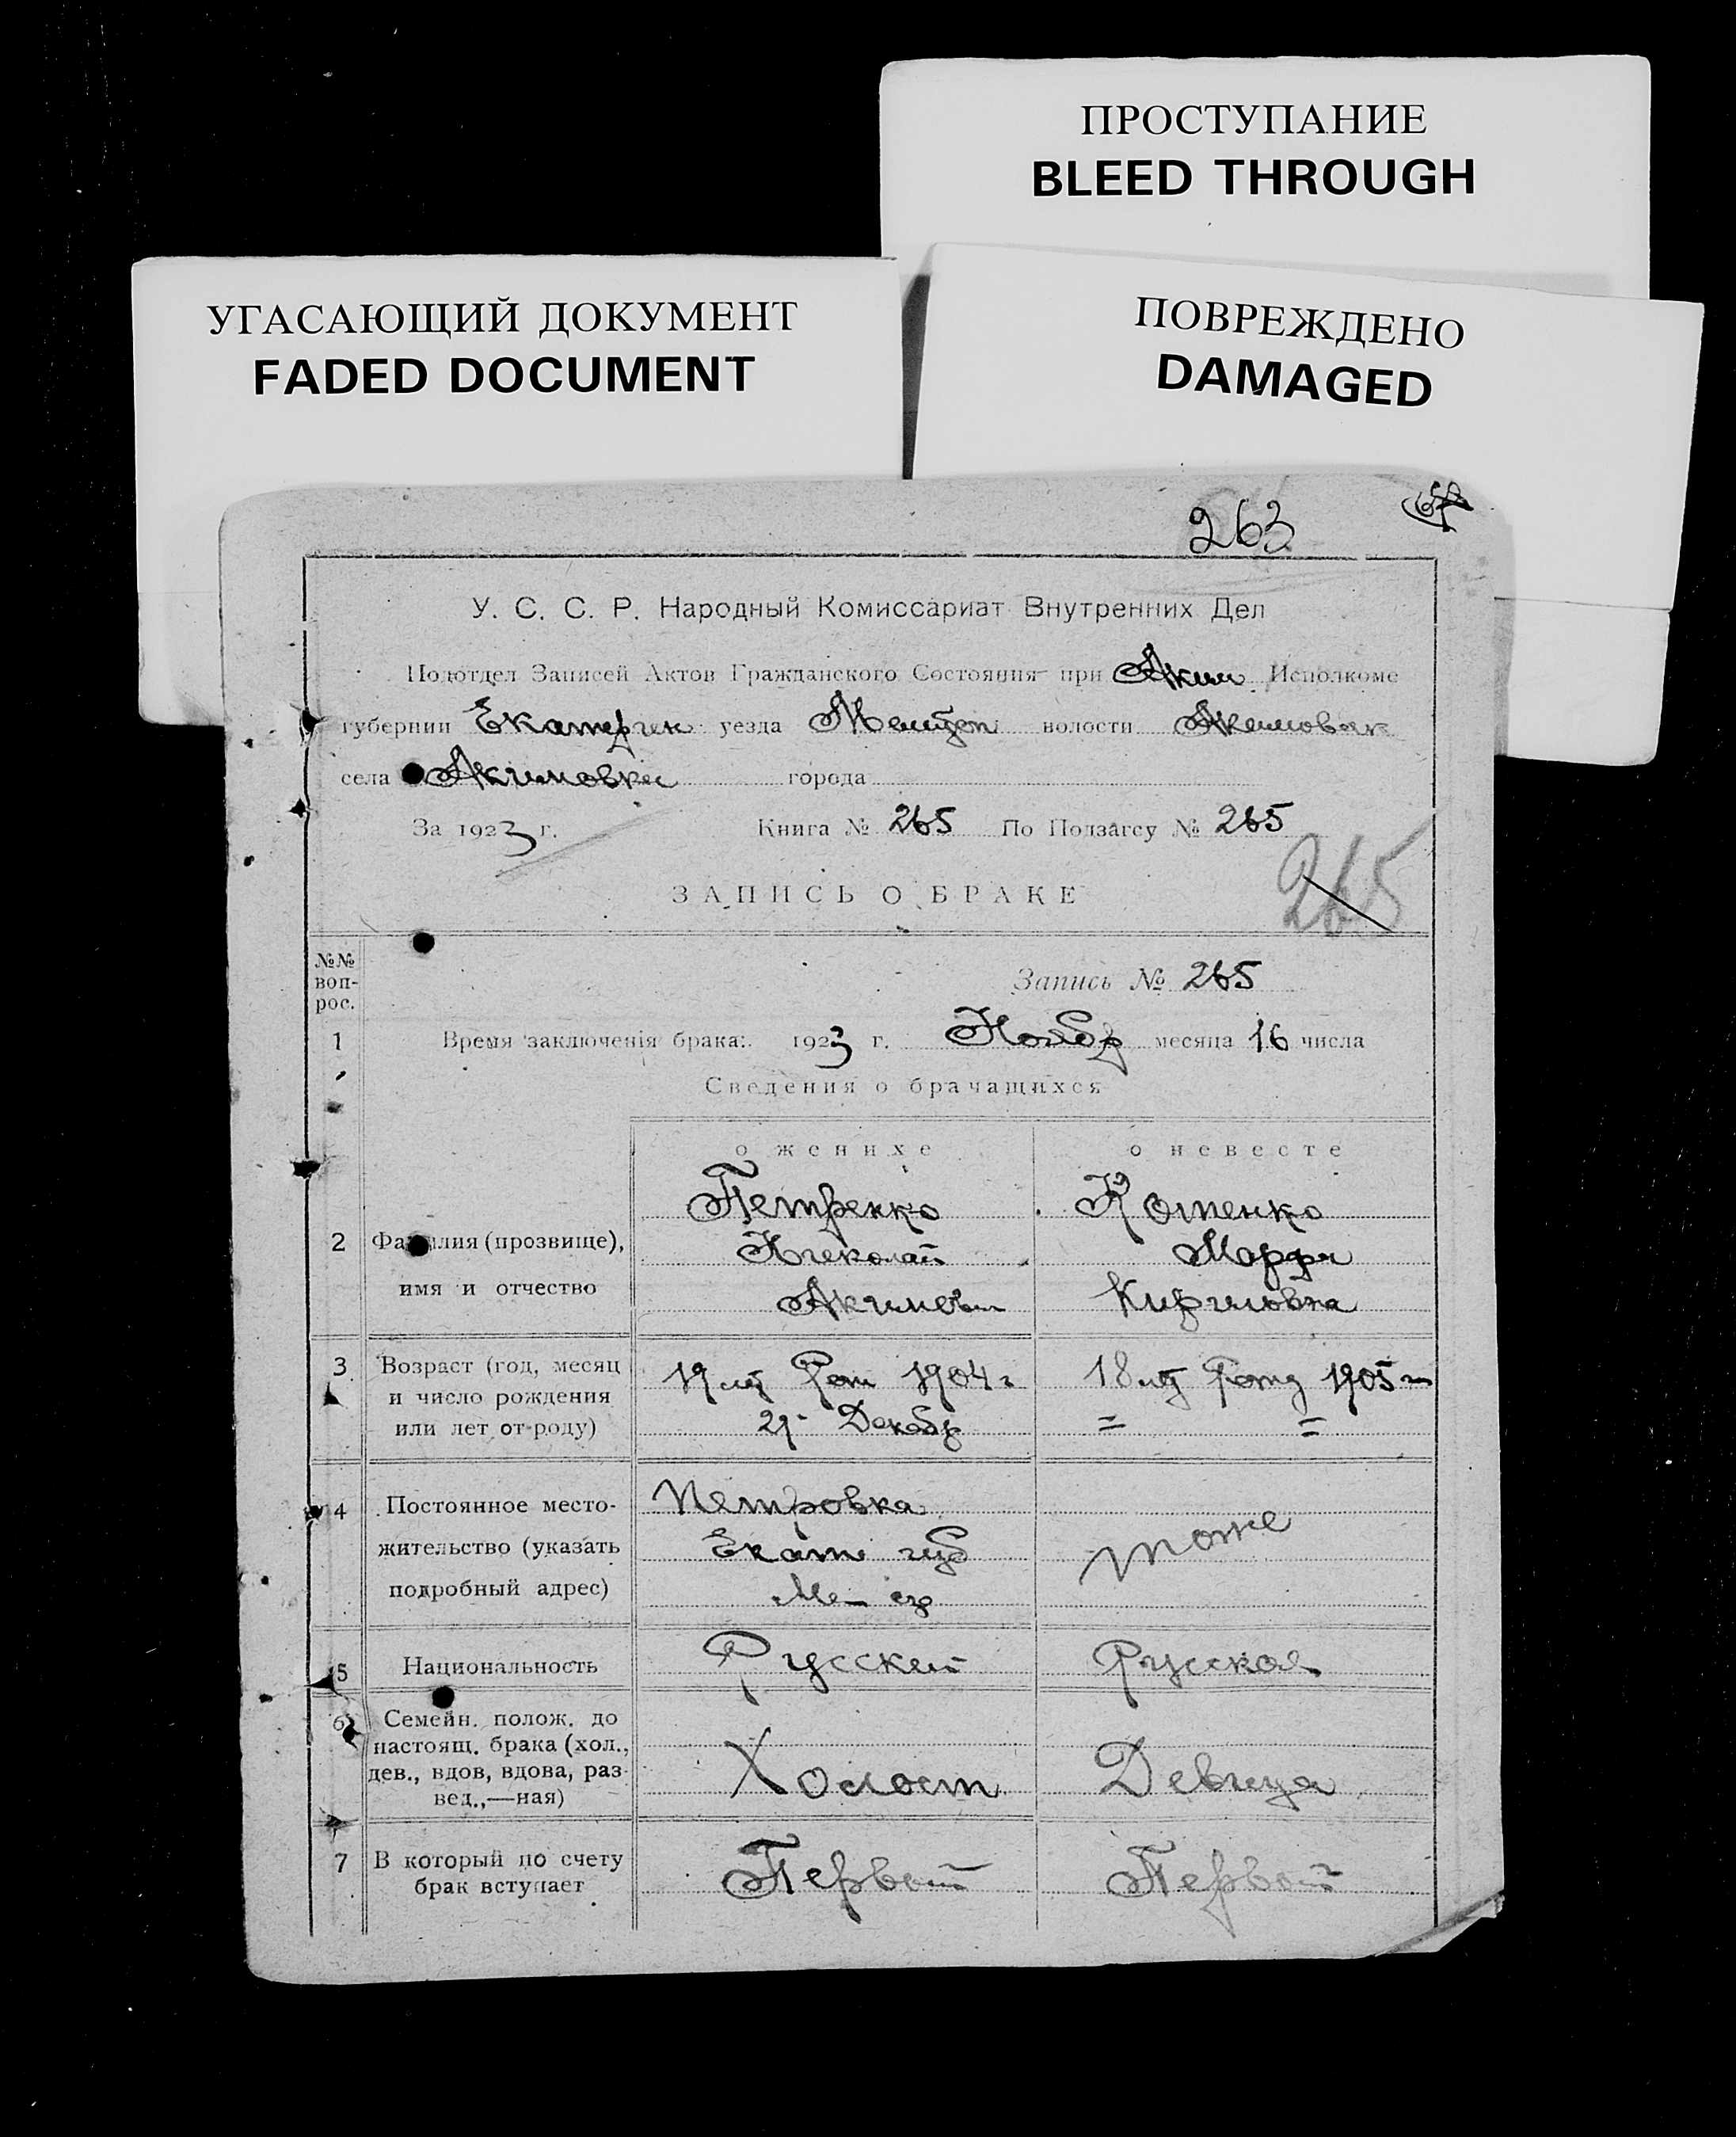 ПРОСТУПАНИЕ
BLEED THROUGH
УГАСАЮЩИЙ ДОКУМЕНТ
FADED DOCUMENT
ПОВРЕЖДЕНО
DAMAGED
263
У. С. С. Р. Народный Комиссариат Внутренних Дел
Подотдел Записей Актов Гражданского Состояния при Аким Исполкоме
губернии Екатерин уезда Мелитоп волости Акимовск
села Акимовка города
За 1923 г. Книга № 265 По Подзагсу № 265
ЗАПИСЬ О БРАКЕ 265
№№ воп-рос.
Запись № 265
1 Время заключенія брака: 1923 г. Ноябр месяца 16 числа
Сведения о брачащихся
о женихе о невесте
Петренко Котенко
2 Фамилия (прозвище), Николай Марфа
имя и отчество Акимович Кириловна
3 Возраст (год, месяц 19 лет 1904 г 18 лет 1905 г
и число рождения
или лет от-роду) Декабр = =
4 Постоянное место- Петровка
жительство (указать Екат губ тоже
подробный адрес) Ме
5 Национальность Русский Русская
6 Семейн. полож. до
настоящ. брака (хол.,
дев., вдов, вдова, раз- Холост Девица
вед.,—ная)
7 В который по счету Первый Первый
брак вступает